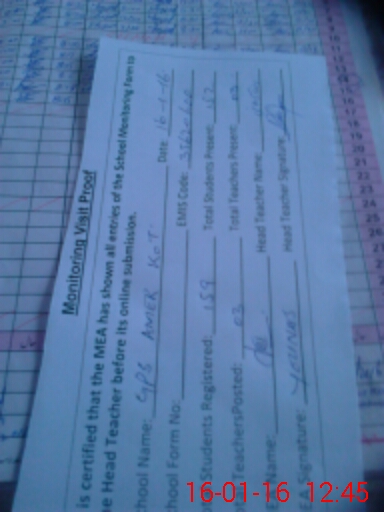 Monitoring Visit Proof
is certified that the MEA has shown all entries of the School Monitoring Form to
e Head Teacher before its online submission.
chool Name: GPS AMER KOT Date 16-1-16
chool Form No: EMIS Code:
Students Registered: 159 Total Students Present: 157
TeachersPosted: 03 Total Teachers Present: 03
Name: Head Teacher Name:
EA Signature: Head Teacher Signature
16-01-16 12:45